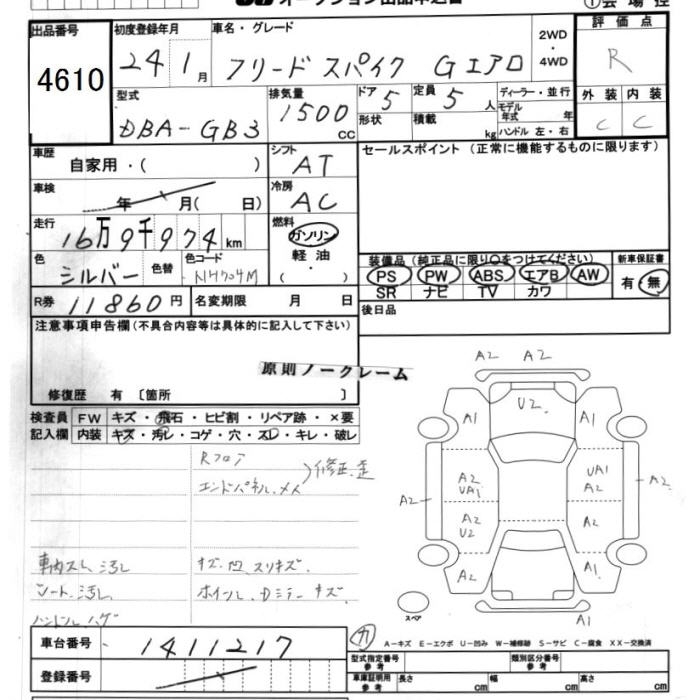 オークション出品申込書
①会場控
出品番号 4610
初度登録年月 24 1月
車名・グレード フリード スパイク Gエアロ
2WD・4WD
評価点 R
型式 DBA-GB3
排気量 1500 cc
ドア 5 形状
定員 5 人 積載 kg
ディーラー・並行
モデル年式 年
ハンドル 左・右
外装 C 内装 C
車歴 自家用・( )
シフト AT
セールスポイント (正常に機能するものに限ります)
車検 年 月( 日)
冷房 AC
走行 16万9千974km
燃料 ガソリン 軽油 ( ・ )
色 シルバー 色替 色コード NH704M
装備品 (純正品に限り○をつけてください)
PS PW ABS エアB AW
SR ナビ TV カワ
新車保証書 有・無
R券 11860円 名変期限 月 日
後日品
注意事項申告欄(不具合内容等は具体的に記入して下さい)
原則ノークレーム
修復歴 有〔箇所 〕
検査員記入欄
FW キズ・飛石・ヒビ割・リペア跡・×要
内装 キズ・汚レ・コゲ・穴・スレ・キレ・破レ
Rフロア
エンドパネル、メメ 〉修正、歪
車内スレ、汚レ
シート、汚レ
ハンドル ハゲ
キズ、凹、スリキズ
ホイール、Dミラー キズ
A2 A2
U2
A1 A1
A2 UA1 UA1 A2
A2 A2
A2 U2 A2
A2 A1
A1
スペア
車台番号 1411217
登録番号
A－キズ E－エクボ U－凹み W－補修跡 S－サビ C－腐食 XX－交換済
型式指定番号 参考 類別区分番号 参考
車庫証明用 参考 長さ cm 幅 cm 高さ cm